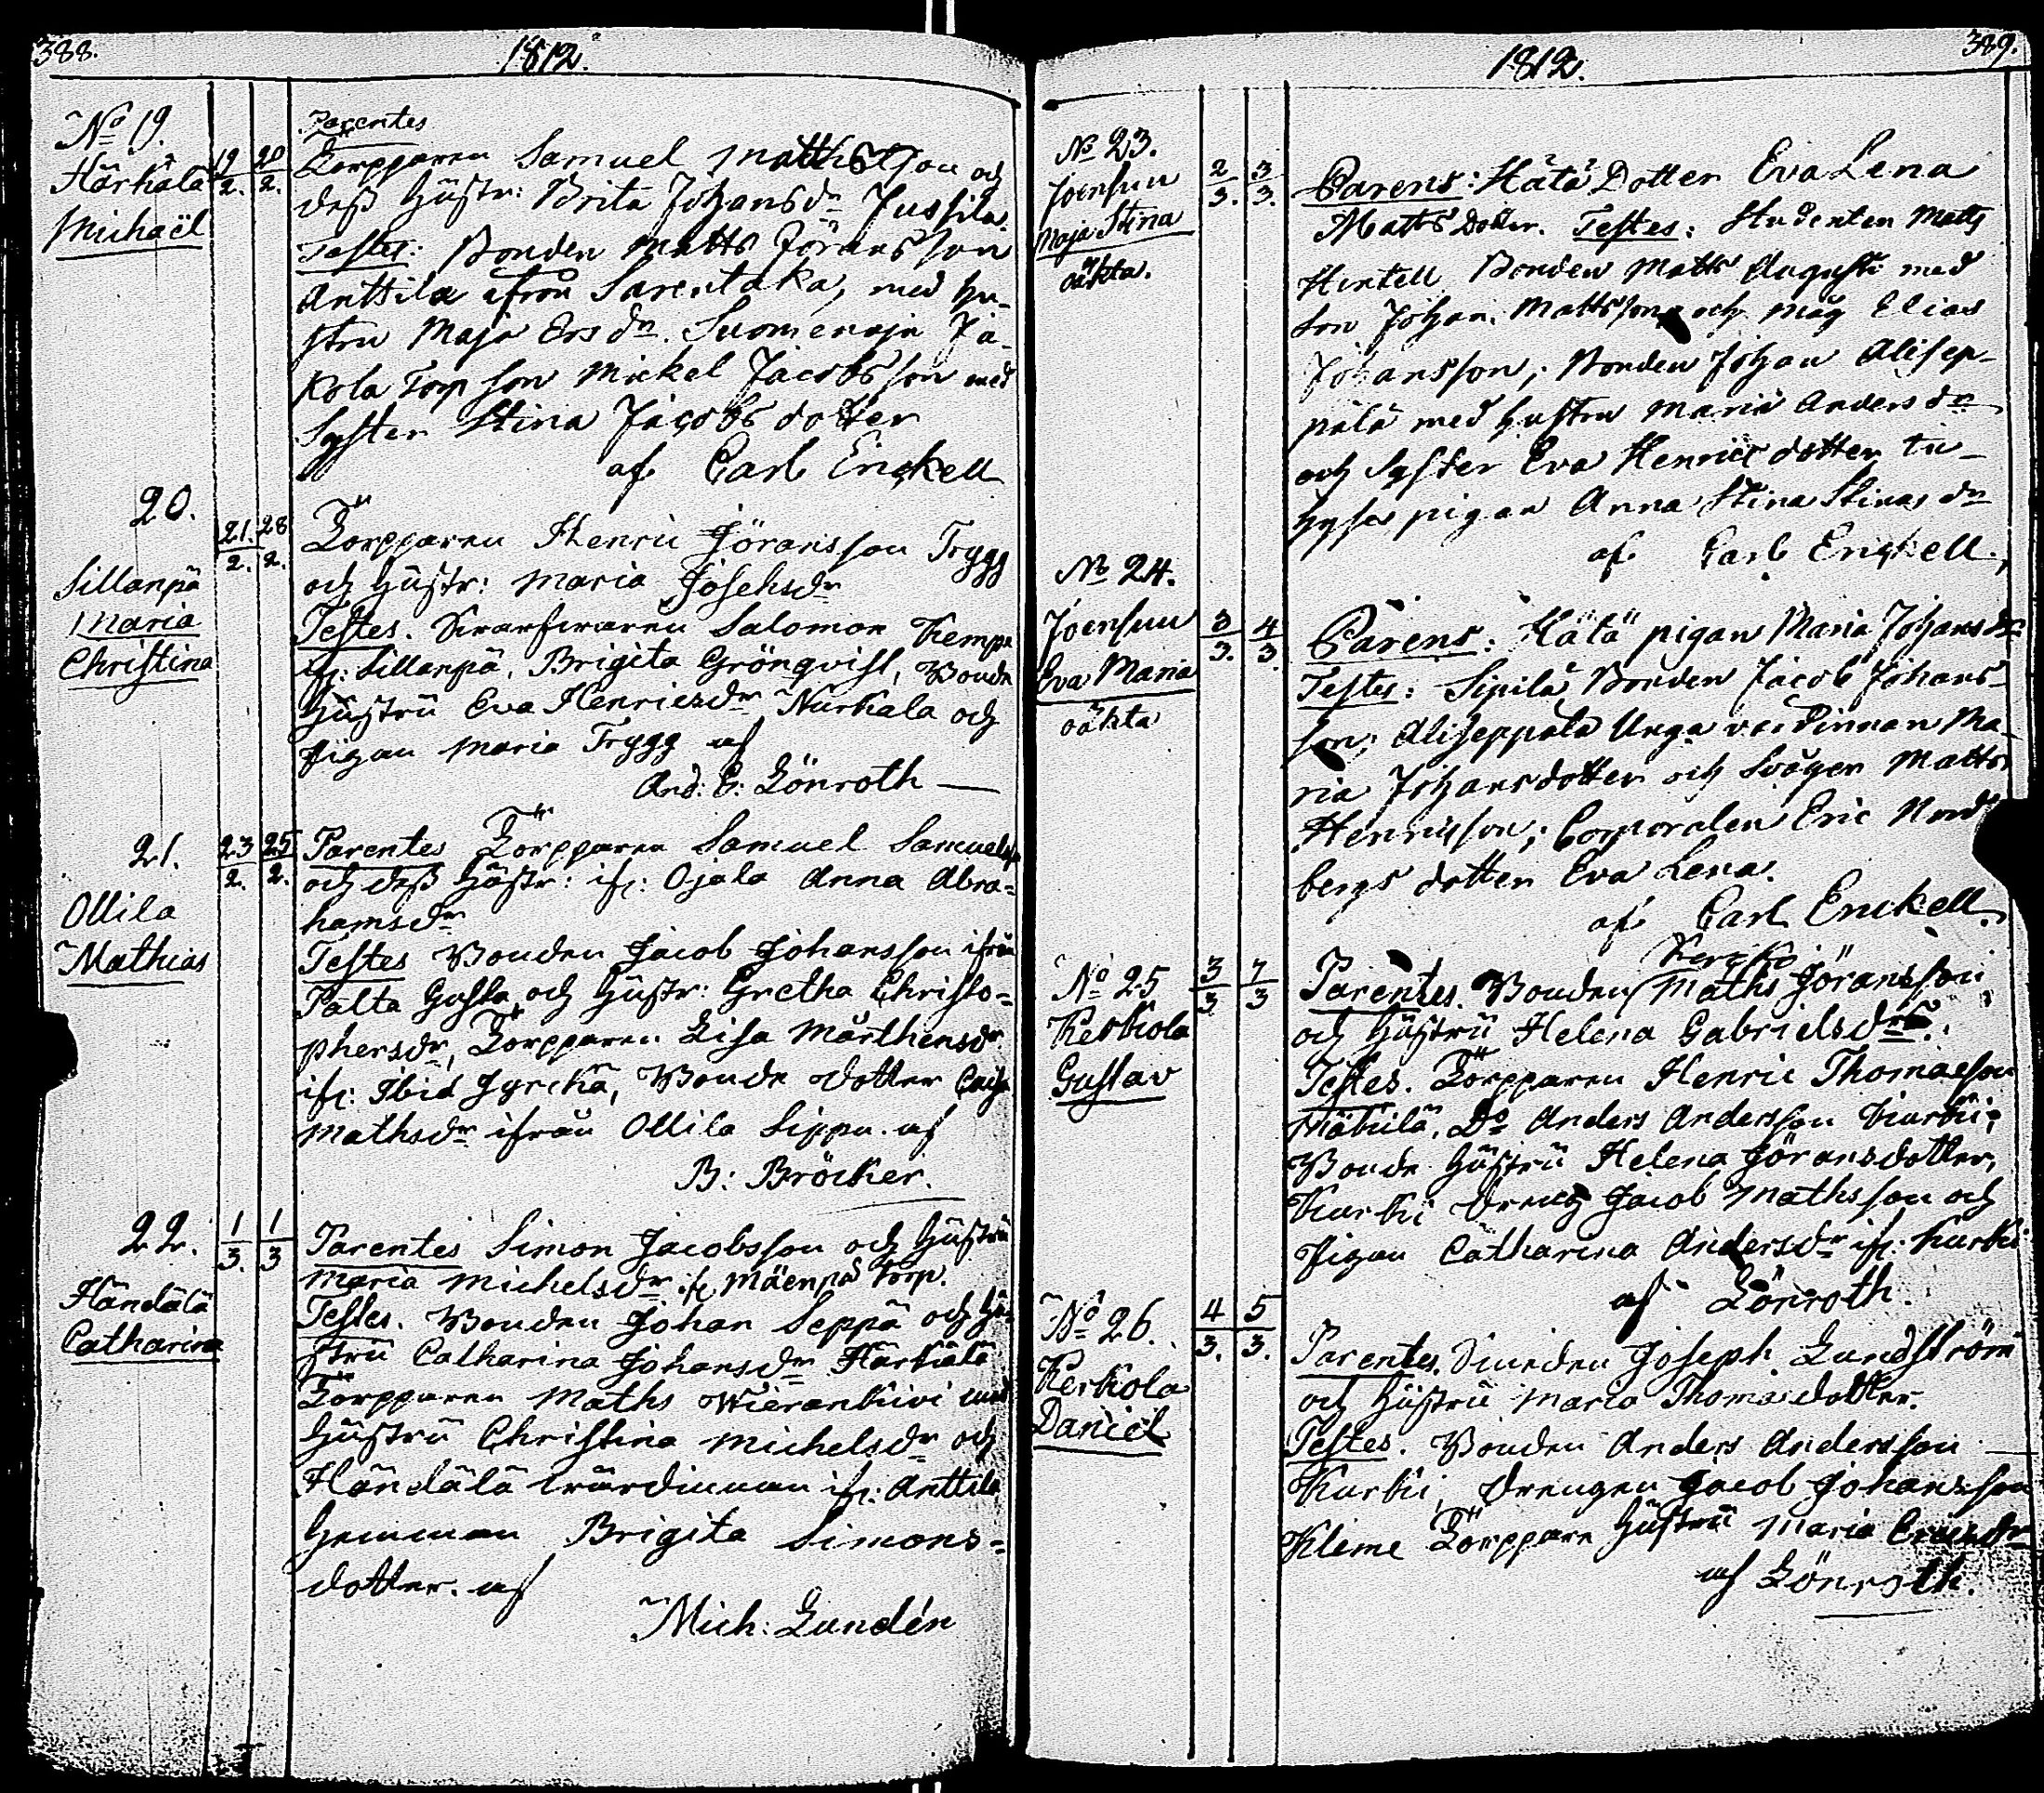 388.
1812.
No 19.
Härkälä
Michaël
19/2. 20/2.
Parentes
Torpparen Samuel Mattsson och
dess Hustr: Brita Johansdr Jussila.
Testes: Bonden Matts Jöransson
Anttila ifrån Sarentaka, med hu-
stru Maja Ersdr. Suomenoja Ja-
kola Torp son Mickel Jacobsson med
Syster Stina Jacobsdotter
af Carl Enckell
20.
Sillanpä
Maria
Christina
21./2. 28/2.
Torpparen Henric Jöransson Trygg
och Hustr: Maria Josephsdr
Testes. Svarfvaren Salomon Kempe
ifr: Sillanpä, Brigita Grönqvist, Bonde
Hustru Eva Henricsdr Nurkala och
Pigan Maria Trygg af
And: E: Lönroth
21.
Ollila
Mathias
23/2. 25/2.
Parentes Torpparen Samuel Samuelss
och dess Hustr: ifr: Ojala Anna Abra=
hamsdr
Testes Bonden Jacob Johansson ifrån
Palta Gusta och Hustr: Gretha Christo=
phersdr, Torpparen Lisa Mårthensdr
ifr: Ibid Jyrckä, Bonde dotter Caisa
Mathsdr ifrån Ollila Sippu. af
B: Bröcker.
22.
Händälä
Catharina
1/3. 1/3
Parentes Simon Jacobsson och Hustru
Maria Michelsdr ifr Mäenpä torp.
Testes. Bonden Johan Seppä och Hu=
stru Catharina Johansdr Härkälä
Torpparen Maths Wierankivi med
Hustru Christina Michelsdr och
Händälä wärdinnan ifr: Anttila
Hemman Brigita Simons=
dotter. af
Mich: Lundén
389.
1812.
No 23.
Joensuu
Maja Stina
oäkta.
2/3. 3/3.
Parens: Hätä Dotter Eva Lena
Matts Dotter. Testes: Studenten Matts
Hertell Bonden Matts Augusti med
son Johan Mattsson och måg Elias
Johansson; Bonden Johan Alisep-
pälä med hustru Maria Andersdr
och Syster Eva Henricsdotter in-
hyses pigan Anna Stina Stinasdr
af Carl Enckell.
No 24.
Joensuu
Eva Maria
oäkta
3/3. 4/3.
Parens: Hätä pigan Maria Johansdr
Testes: Sipilä Bonden Jacob Johans-
son; Aliseppälä Unga värdinnan Ma-
ria Johansdotter och Svåger Matts
Henricsson; Corporalen Eric Nord
bergs dotter Eva Lena.
af Carl Enckell
No 25
Kerkola
Gustav
3/3 7/3
Parentes. Bonden Maths Jöransson
och Hustru Helena Gabrielsdr.
Testes. Torpparen Henric Thomasson
Do Anders Andersson Kurki;
Bonde Hustru Helena Jöransdotter,
Kurki Dreng Jacob Mathsson och
Pigan Catharina Andersdr ifr: Kurki
af Lönroth.
No 26.
Kerkola
Daniel
4/3. 5/3.
Parentes. Smeden Joseph Lundström
och Hustru Maria Thomasdotter.
Testes. Bonden Anders Andersson
Kurki, Drengen Jacob Johansson
Kleme Torppare Hustru Maria
af Lönroth.